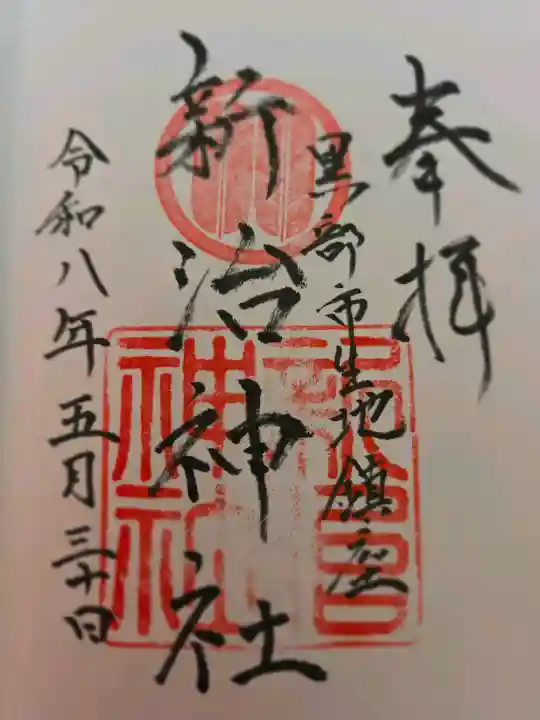 奉拝
黒部市生地鎮座
新治神社
令和八年五月三十日